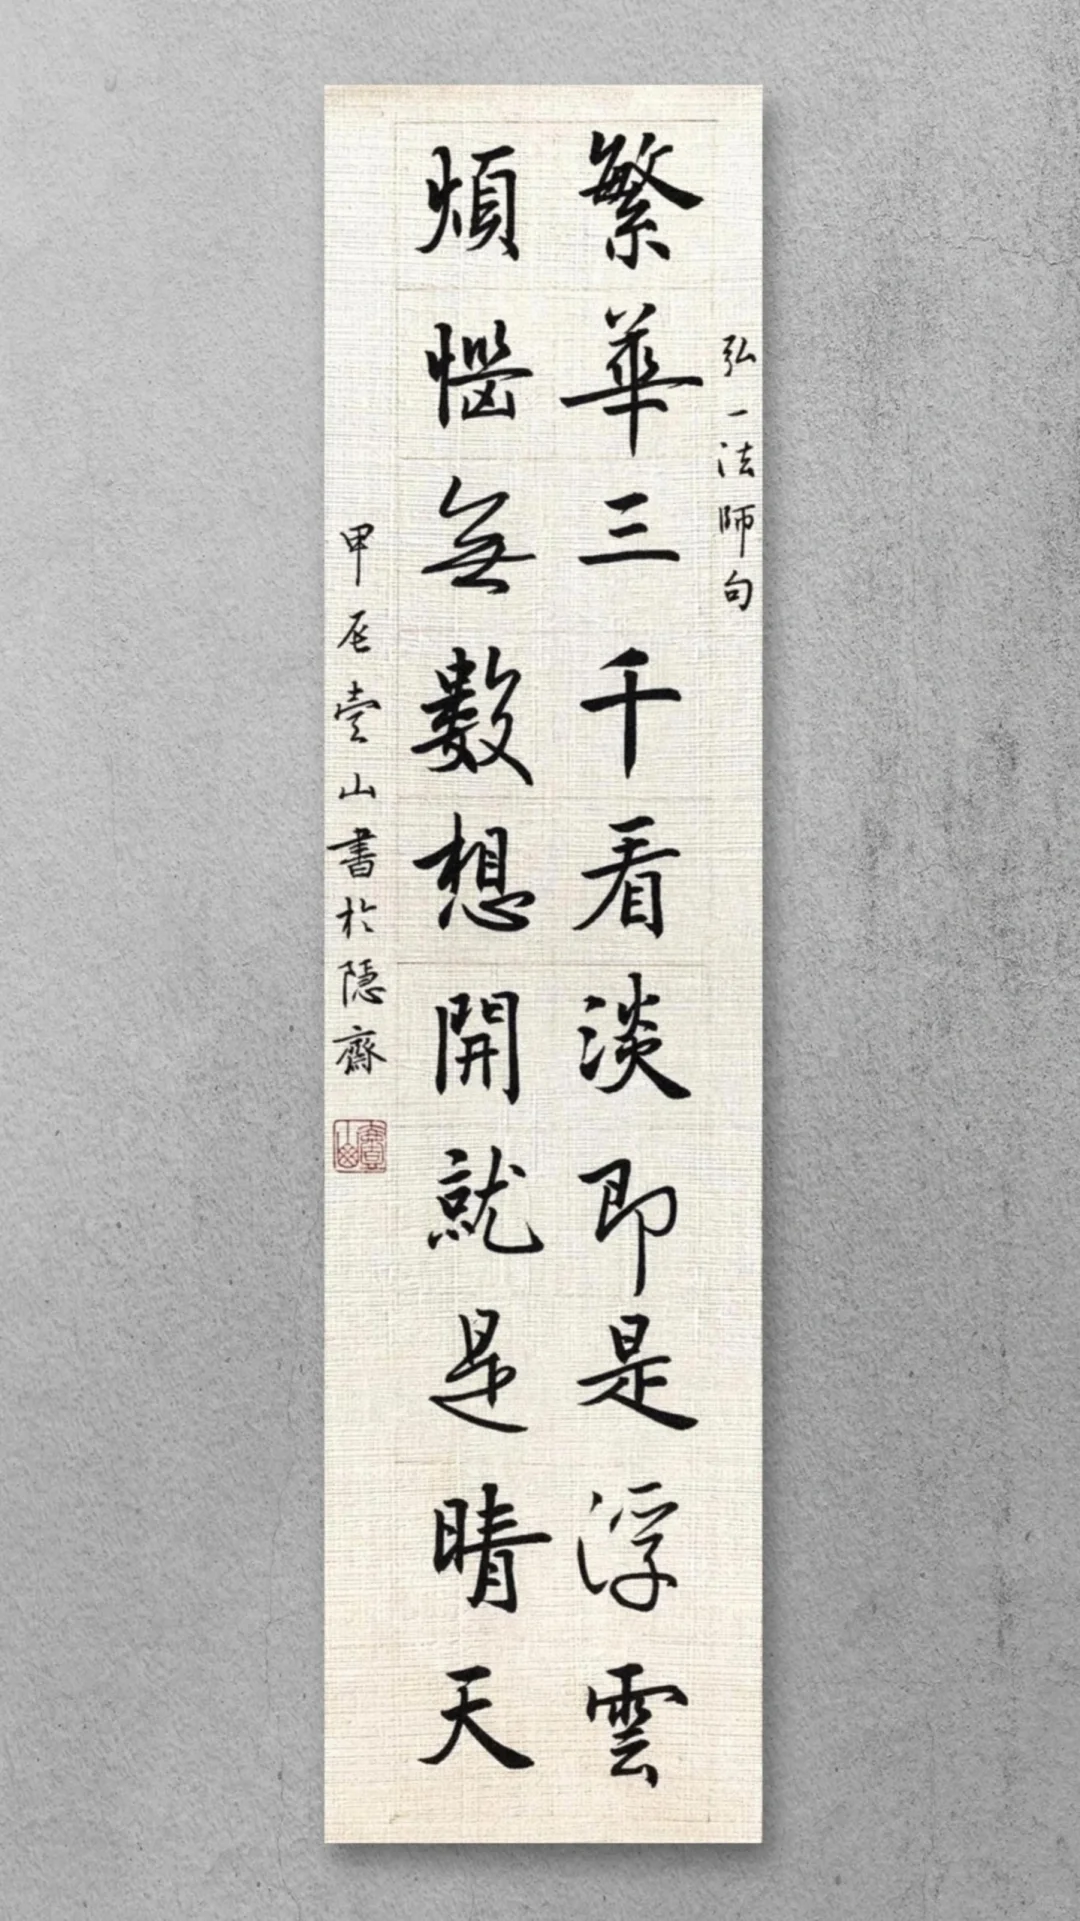 弘一法師句
繁華三千看淡即是浮雲
煩惱無數想開就是晴天
甲辰壹山書於隱齋